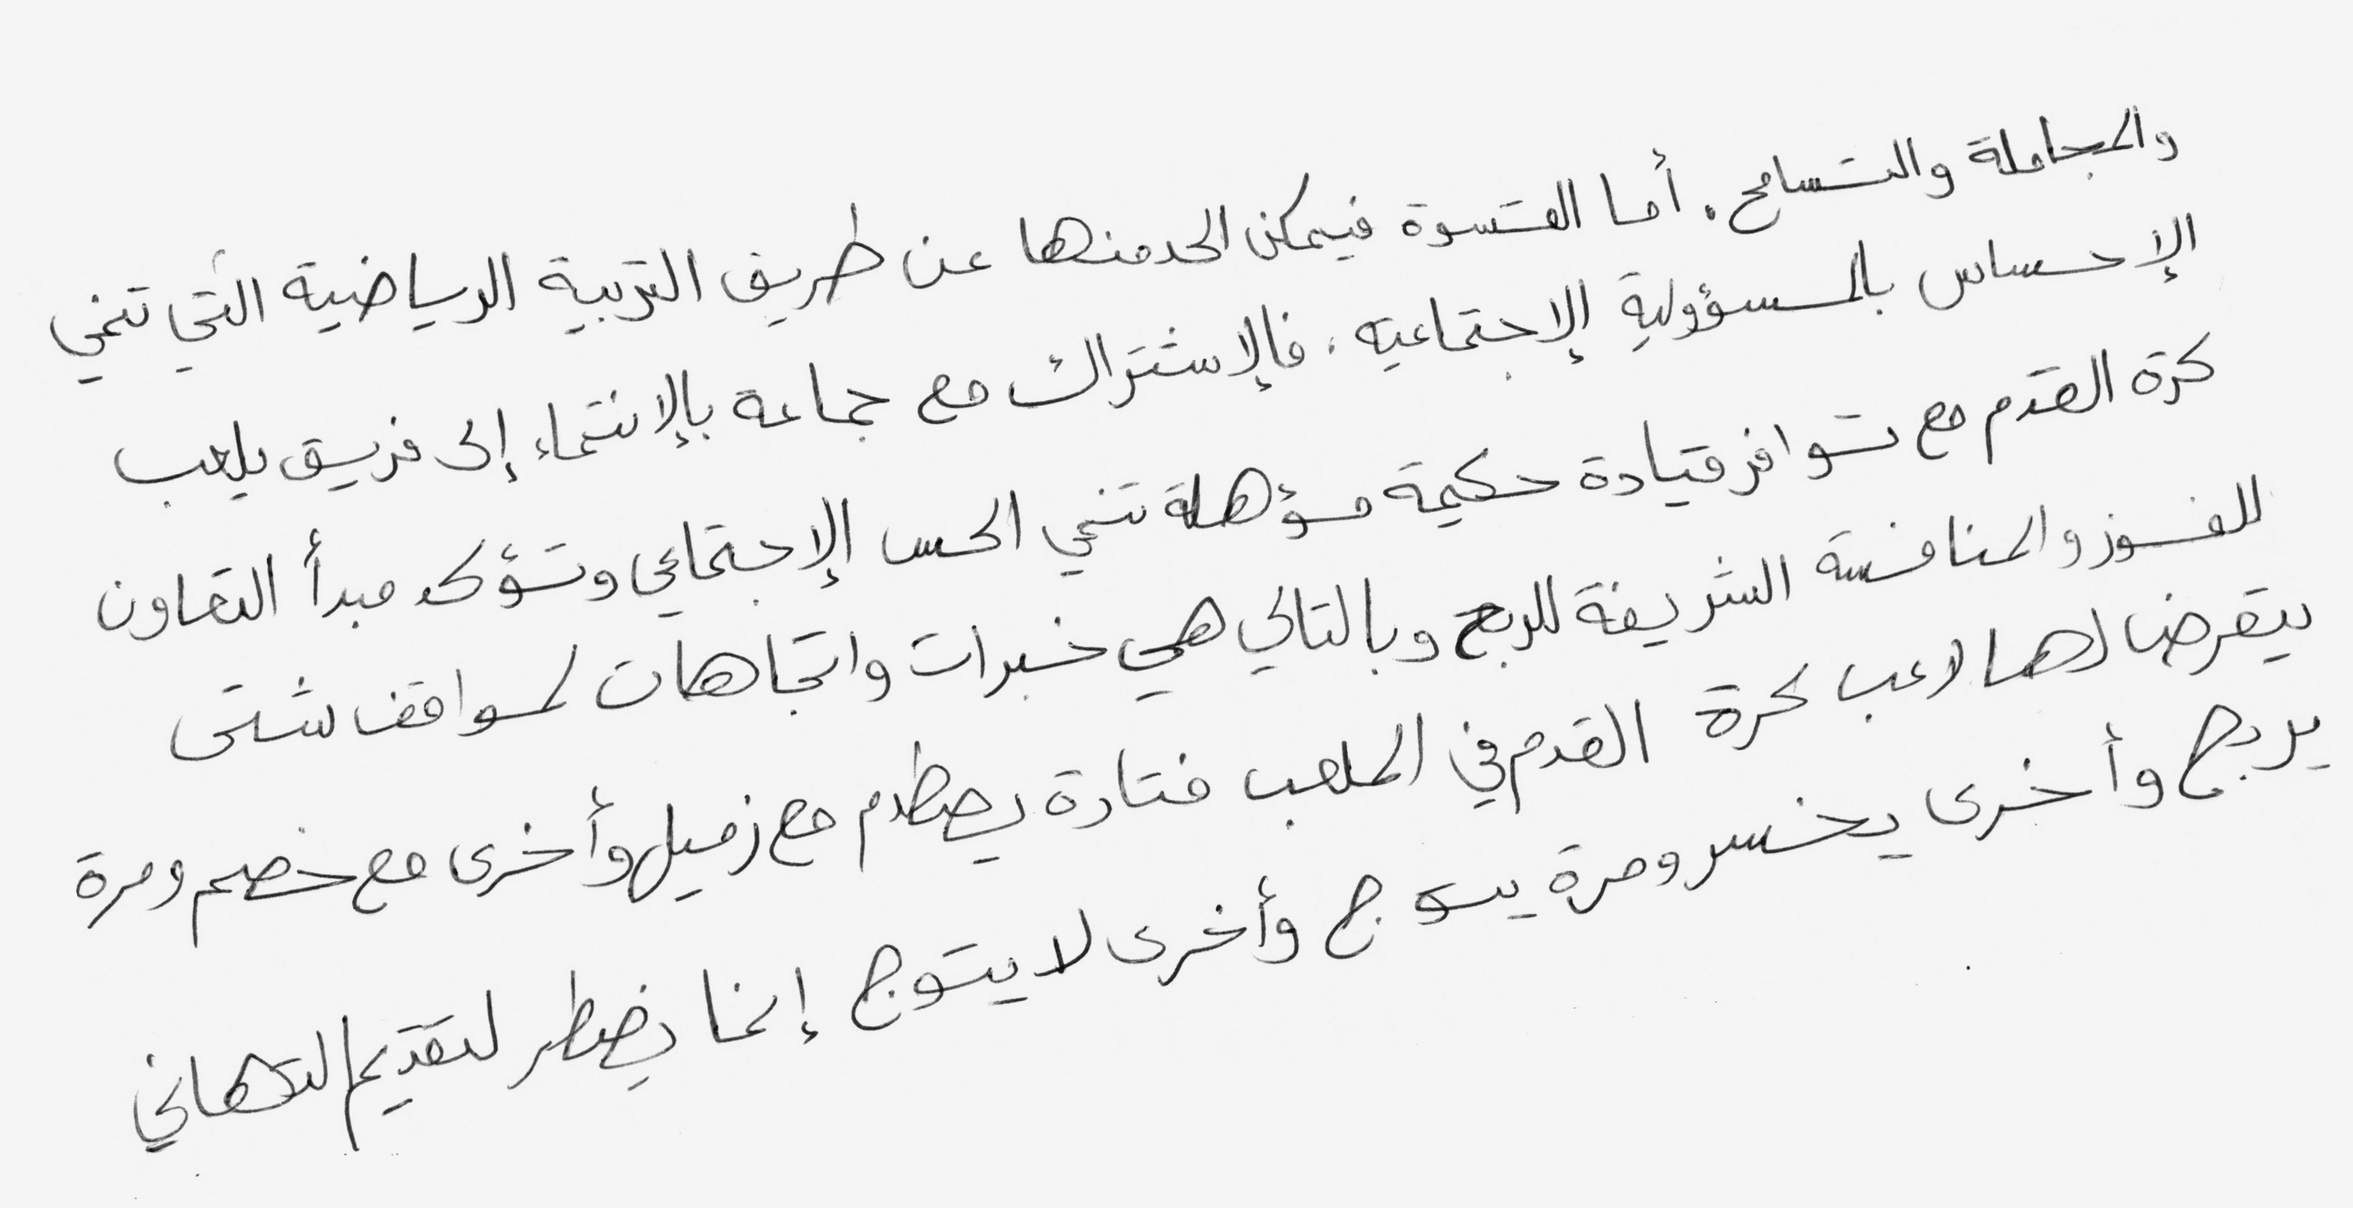 والمجاملة والتسامح. أما القسوة فيمكن الحد منها عن طريق التربية الرياضية التي تنمي
الإحساس بالمسؤولية الإجتماعية. فالإشتراك مع جماعة بالإنتماء إلى فريق يلعب
كرة القدم مع توافر قيادة حكيمة مؤهلة تنمي الحس الإجتماعي وتؤكد مبدأ التعاون
للفوز والمنافسة الشريفة للربح وبالتالي هي خبرات واتجاهات لمواقف شتى
يتعرض لها لاعب كرة القدم في الملعب فتارة يصطدم مع زميله وأخرى مع خصم ومرة
يربح وأخرى يخسر ومرة يتوج وأخرى لا يتوج إنما يضطر لتقديم التهاني